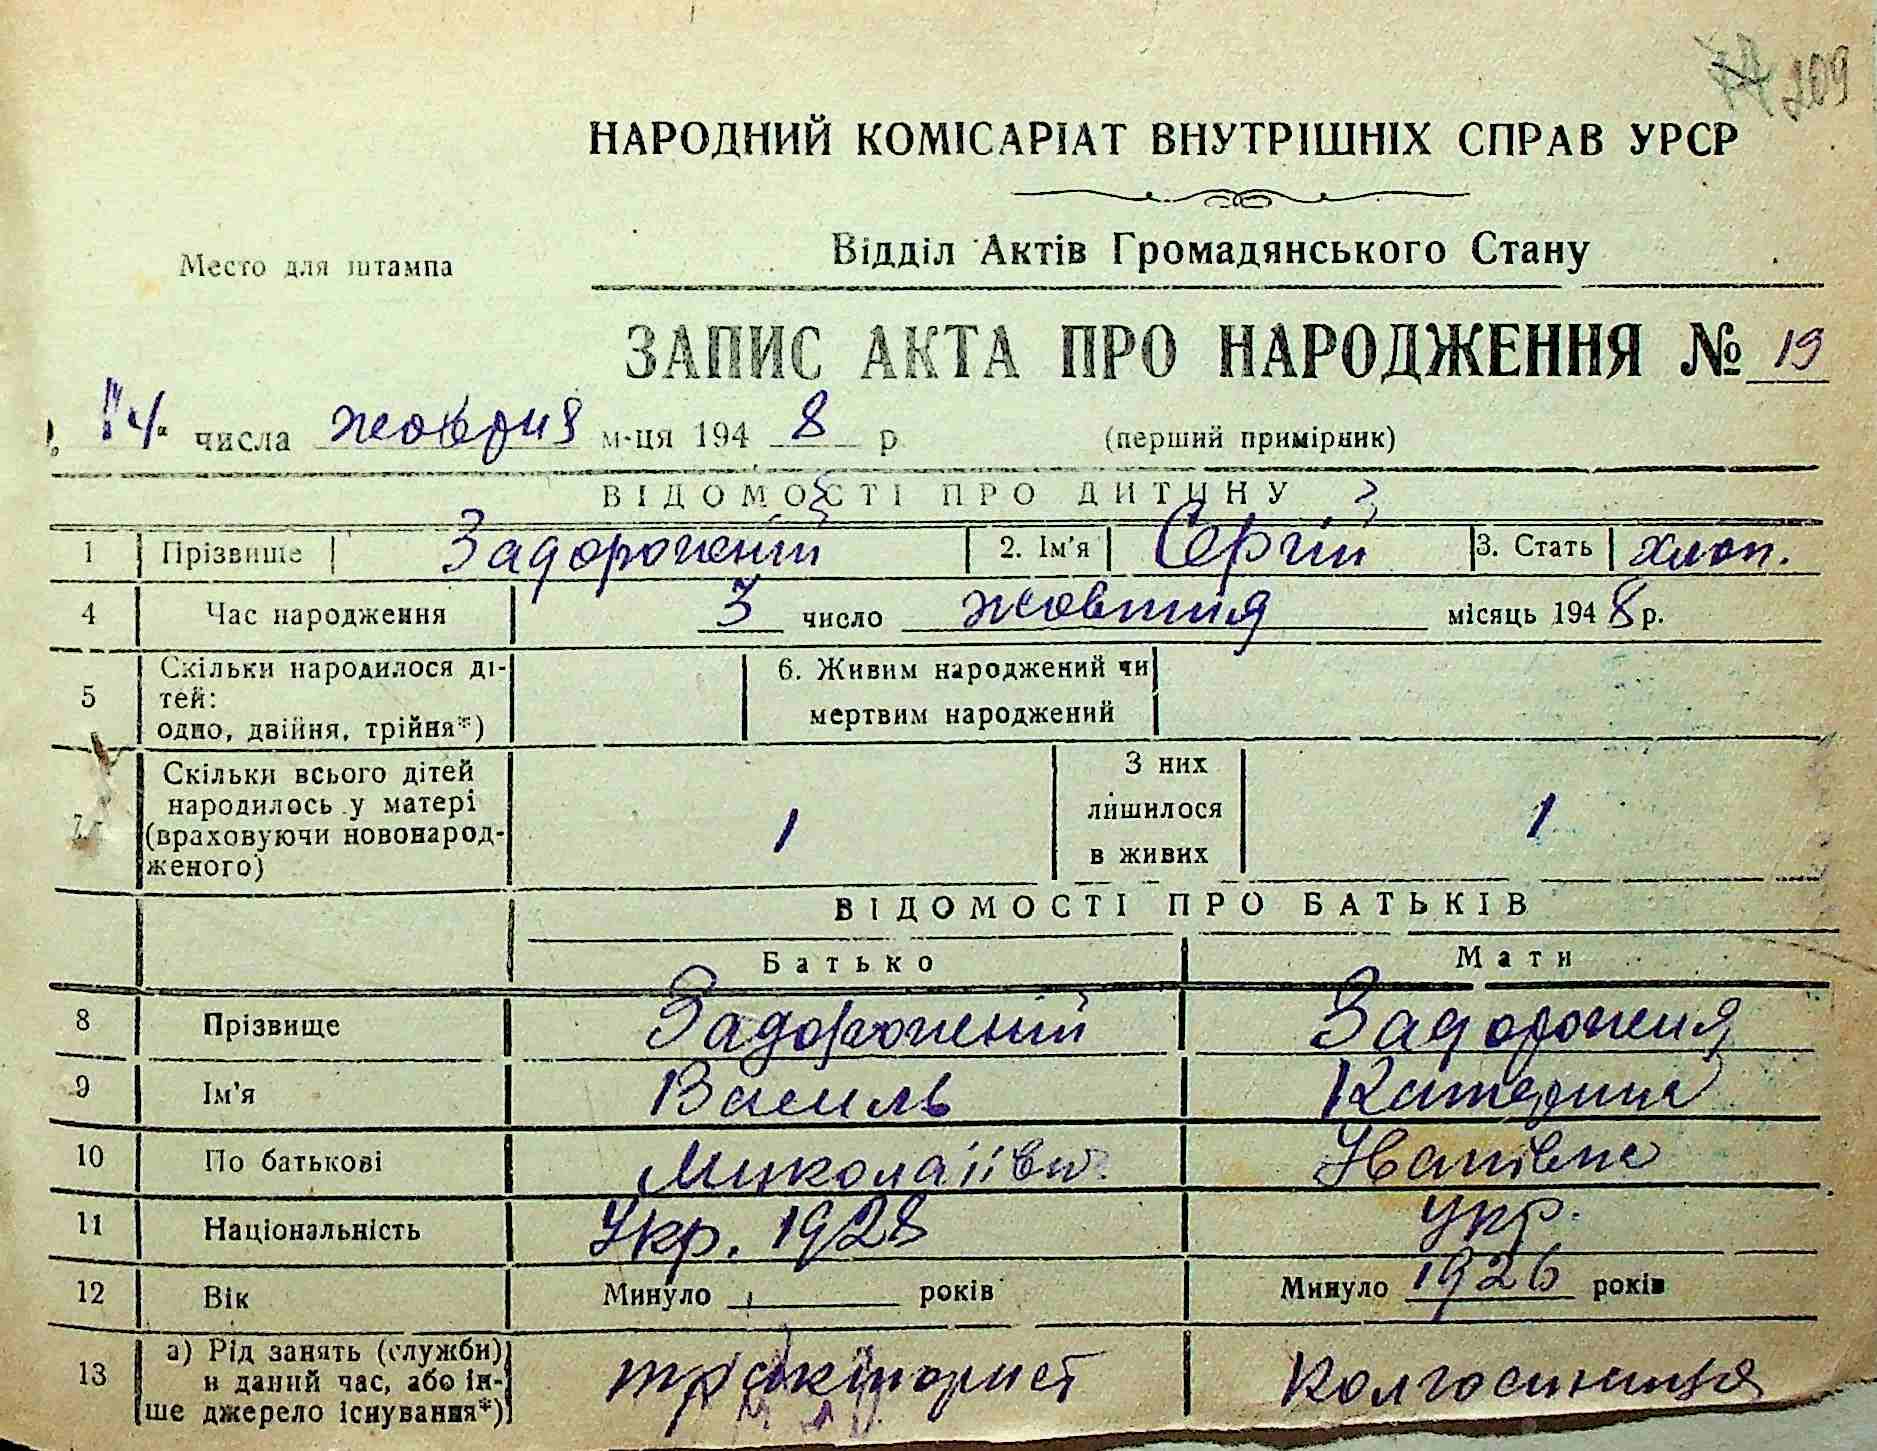 209
НАРОДНИЙ КОМІСАРІАТ ВНУТРІШНІХ СПРАВ УРСР
Место для штампа
Відділ Актів Громадянського Стану
ЗАПИС АКТА ПРО НАРОДЖЕННЯ № 19
"14" числа жовтня м-ця 1948 р. (перший примірник)
ВІДОМОСТІ ПРО ДИТИНУ
1 Прізвище Задорожній 2. Ім'я Сергій 3. Стать хлоп.
4 Час народження 3 число жовтня місяць 1948 р.
5 Скільки народилося ді-
тей:
одно, двійня, трійня*)
6. Живим народжений чи
мертвим народжений
Скільки всього дітей
народилось у матері
(враховуючи новонарод-
женого)
1
З них
лишилося
в живих
1
ВІДОМОСТІ ПРО БАТЬКІВ
Батько Мати
8 Прізвище Задорожній Задорожня
9 Ім'я Василь Катерина
10 По батькові Миколайович Іванівна
11 Національність Укр. 1928 укр.
12 Вік Минуло років Минуло 1926 років
13 а) Рід занять (служби)
н даний час, або ін-
ше джерело існування*)
колгоспниця